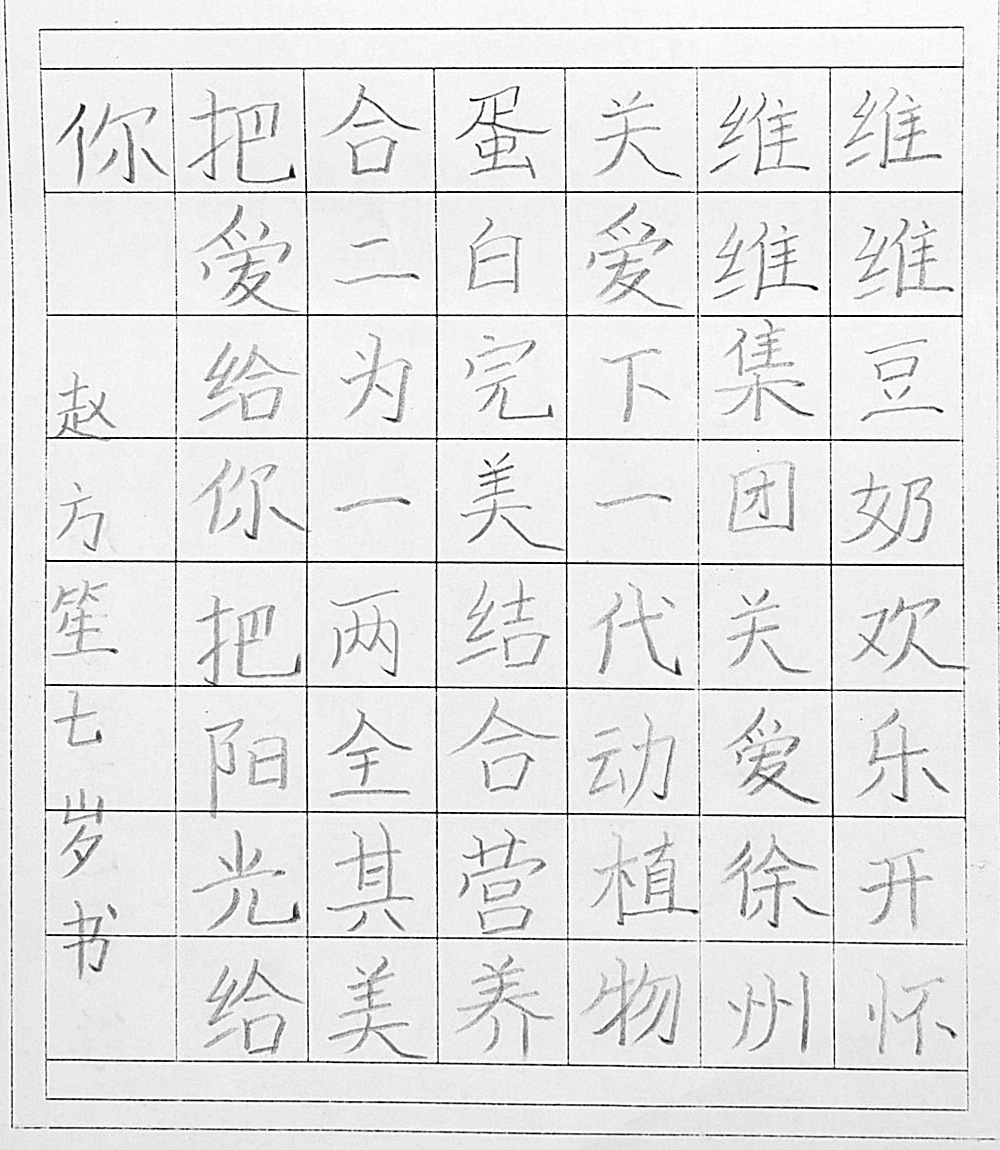 维维豆奶欢乐开怀
维维集团关爱徐州
关爱下一代动植物
蛋白完美结合营养
合二为一两全其美
把爱给你把阳光给
你
赵方笙七岁书